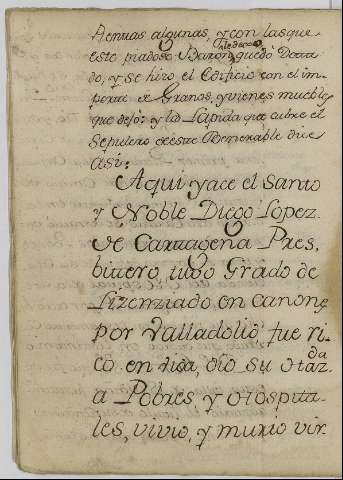 Renuas algunas, y con las que
este piadoso Varon quedó Dota
do, y se hizo el Edificio con el im-
porte de Granos, y vienes muebles
que dejo: y la Lapida que cubre el
Sepulcro de este Venerable dice
asi:
Aqui yace el Santo
y Noble Diego Lopez
de Cartagena Pres.
bitero, tuvo Grado de
Lizenziado en canones
por Valladolid fue ri
co en vida, dio su
a Pobres y Ospita-
les, vivio, y murio vir.